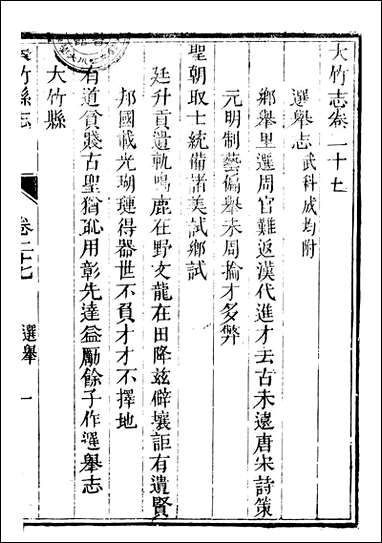 大竹志卷二十七
選舉志武科成均附
鄉舉里選周官難返漢代進才去古未遠唐宋詩策
元明制藝偏舉未周掄才多弊
聖朝取士統備諸美試鄉試
廷升貢遺軌鳴鹿在野文龍在田降兹僻壤詎有遺賢
邦國載光瑚璉得器世不負才才不擇地
有道貧賤古聖猶耻用彰先達益勵餘子作選舉志
大竹縣
竹縣志
卷二十七
選舉
一